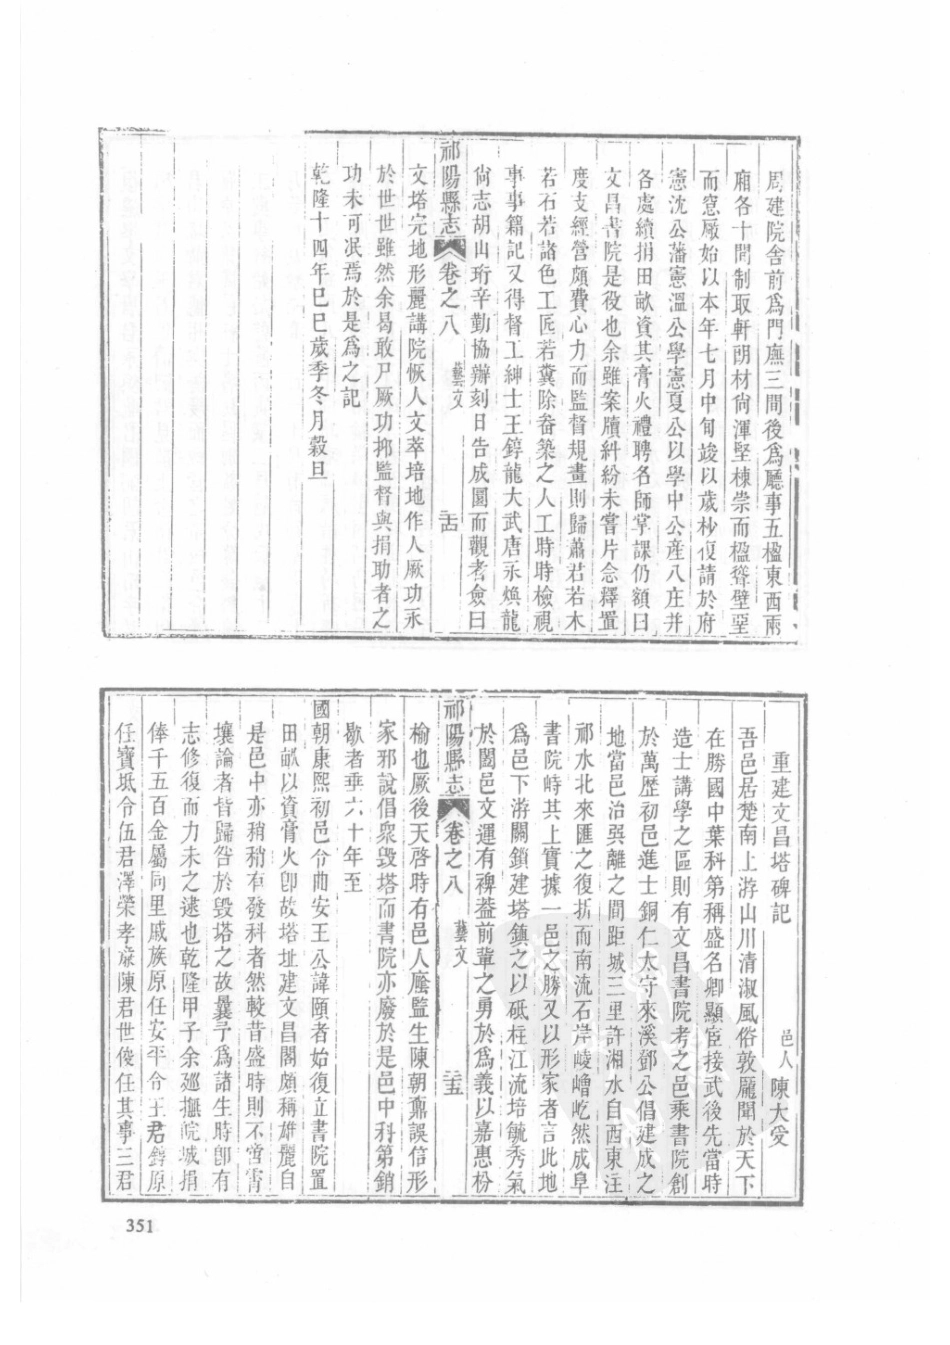 周建院舍前爲門廡三間後爲廳事五楹東西兩
廂各十間制取軒朗材尙渾堅棟崇而楹聳壁堊
而窻厰始以本年七月中旬竣以歲杪復請於府
憲沈公藩憲溫公學憲夏公以學中公產八庄并
各處續捐田畝資其膏火禮聘名師掌課仍額曰
文昌書院是役也余雖案牘紏紛未嘗片念釋置
度支經營頗費心力而監督規畫則歸蕭君若木
若石若諸色工匠若糞除畚築之人工時時檢視
事事籍記又得督工紳士王錞龍大武唐永煥龍
尙志胡山珩辛勤協辦刻日告成圜而觀者僉曰
祁陽縣志 卷之八 藝文 二十四
文塔完地形麗講院恢人文萃培地作人厥功永
於世世雖然余曷敢尸厥功抑監督與捐助者之
功未可泯焉於是爲之記
乾隆十四年巳巳歲季冬月穀旦
重建文昌塔碑記 邑人 陳大受
吾邑居楚南上游山川清淑風俗敦龎聞於天下
在勝國中葉科第稱盛名卿顯宦接武後先當時
造士講學之區則有文昌書院考之邑乘書院創
於萬歷初邑進士銅仁太守來溪鄧公倡建成之
地當邑治巽離之間距城三里許湘水自西東注
祁水北來匯之復折而南流石岸崚嶒屹然成阜
書院峙其上實據一邑之勝又以形家者言此地
爲邑下游關鎖建塔鎮之以砥柱江流培毓秀氣
於闔邑文運有裨葢前輩之勇於爲義以嘉惠枌
祁陽縣志 卷之八 藝文 二十五
榆也厥後天啓時有邑人廕監生陳朝鼐誤信形
家邪說倡衆毀塔而書院亦廢於是邑中科第銷
歇者垂六十年至
國朝康熙初邑令曲安王公諱頤者始復立書院置
田畝以資膏火卽故塔址建文昌閣頗稱雄麗自
是邑中亦稍稍有發科者然較昔盛時則不啻霄
壤論者皆歸咎於毀塔之故曩予爲諸生時卽有
志修復而力未之逮也乾隆甲子余廵撫皖城捐
俸千五百金屬同里戚族原任安平令王君錞原
任寶坻令伍君澤榮孝亷陳君世俊任其事三君
351